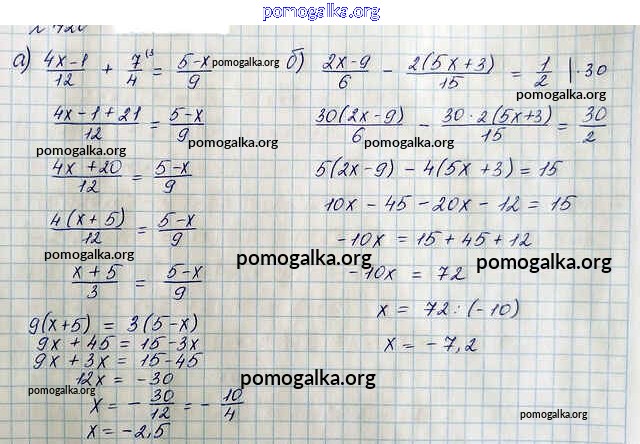 pomogalka.org
а) (4x-1)/12 + 7/4 (3 = (5-x)/9 pomogalka.org
(4x-1+21)/12 = (5-x)/9
pomogalka.org
(4x+20)/12 = (5-x)/9
4(x+5)/12 = (5-x)/9
pomogalka.org
(x+5)/3 = (5-x)/9
9(x+5) = 3(5-x)
9x + 45 = 15-3x
9x + 3x = 15-45
12x = -30
pomogalka.org
x = -30/12 = -10/4
x = -2,5
б) (2x-9)/6 - 2(5x+3)/15 = 1/2 |·30
pomogalka.org
30(2x-9)/6 - 30·2(5x+3)/15 = 30/2
pomogalka.org pomogalka.org
5(2x-9) - 4(5x+3) = 15
10x - 45 - 20x - 12 = 15
-10x = 15+45+12
pomogalka.org pomogalka.org
-10x = 72
x = 72:(-10)
x = -7,2
pomogalka.org
pomogalka.org